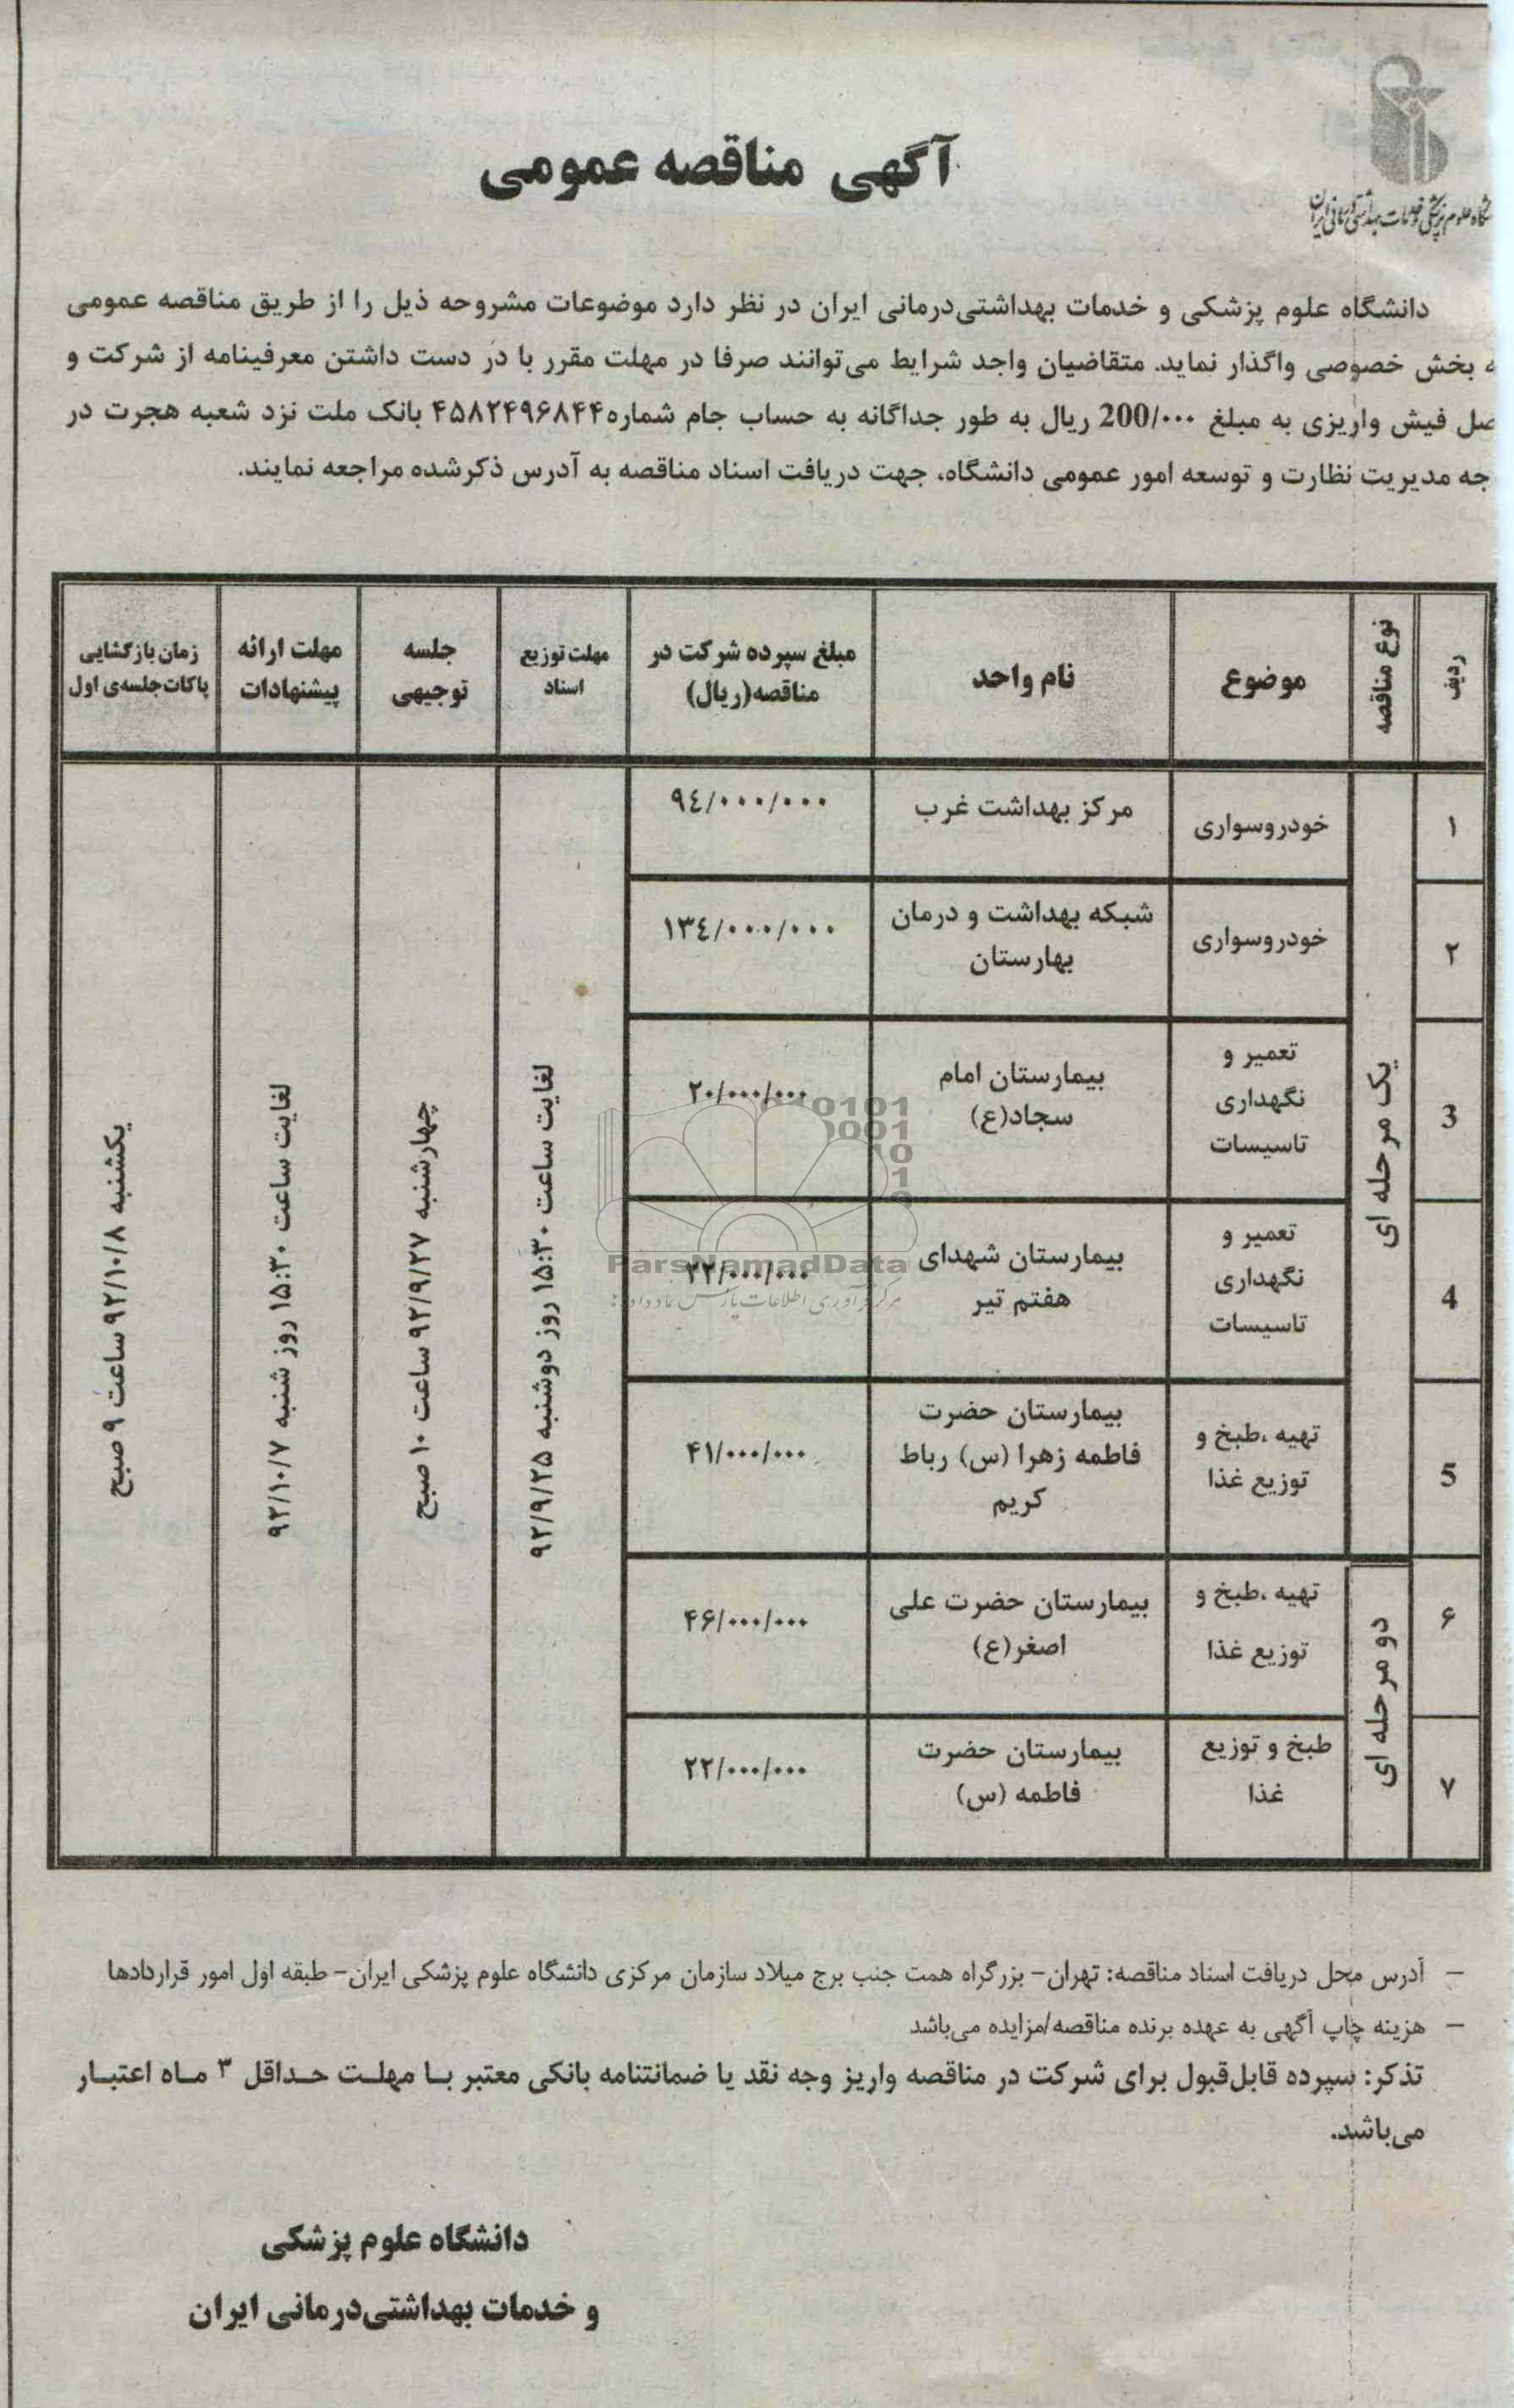 آگهی مناقصه عمومی
دانشگاه علوم پزشکی و خدمات بهداشتی‌درمانی ایران در نظر دارد موضوعات مشروحه ذیل را از طریق مناقصه عمومی
بخش خصوصی واگذار نماید. متقاضیان واجد شرایط می‌توانند صرفا در مهلت مقرر با در دست داشتن معرفینامه از شرکت و
فیش واریزی به مبلغ 200/۰۰۰ ریال به طور جداگانه به حساب جام شماره۴۵۸۲۴۹۶۸۴۴ بانک ملت نزد شعبه هجرت در
مدیریت نظارت و توسعه امور عمومی دانشگاه، جهت دریافت اسناد مناقصه به آدرس ذکرشده مراجعه نمایند.
ردیف
نوع مناقصه
موضوع
نام واحد
مبلغ سپرده شرکت در
مناقصه(ریال)
مهلت توزیع
اسناد
جلسه
توجیهی
مهلت ارائه
پیشنهادات
زمان بازگشایی
پاکات‌جلسه‌ی اول
۱
یک مرحله ای
خودروسواری
مرکز بهداشت غرب
۹٤/۰۰۰/۰۰۰
لغایت ساعت ۱۵:۳۰ روز دوشنبه ۹۲/۹/۲۵
چهارشنبه ۹۲/۹/۲۷ ساعت ۱۰ صبح
لغایت ساعت ۱۵:۳۰ روز شنبه ۹۲/۱۰/۷
یکشنبه ۹۲/۱۰/۸ ساعت ۹ صبح
۲
خودروسواری
شبکه بهداشت و درمان
بهارستان
۱۳٤/۰۰۰/۰۰۰
3
تعمیر و
نگهداری
تاسیسات
بیمارستان امام
سجاد(ع)
۲۰/۰۰۰/۰۰۰
4
تعمیر و
نگهداری
تاسیسات
بیمارستان شهدای
هفتم تیر
۲۲/۰۰۰/۰۰۰
5
تهیه ،طبخ و
توزیع غذا
بیمارستان حضرت
فاطمه زهرا (س) رباط
کریم
۴۱/۰۰۰/۰۰۰
۶
دو مرحله ای
تهیه ،طبخ و
توزیع غذا
بیمارستان حضرت علی
اصغر(ع)
۴۶/۰۰۰/۰۰۰
۷
طبخ و توزیع
غذا
بیمارستان حضرت
فاطمه (س)
۲۲/۰۰۰/۰۰۰
ParsNamadData
– آدرس محل دریافت اسناد مناقصه: تهران- بزرگراه همت جنب برج میلاد سازمان مرکزی دانشگاه علوم پزشکی ایران- طبقه اول امور قراردادها
– هزینه چاپ آگهی به عهده برنده مناقصه/مزایده می‌باشد
تذکر: سپرده قابل‌قبول برای شرکت در مناقصه واریز وجه نقد یا ضمانتنامه بانکی معتبر بـا مهلـت حـداقل ۳ مـاه اعتبـار
می‌باشد.
دانشگاه علوم پزشکی
و خدمات بهداشتی‌درمانی ایران